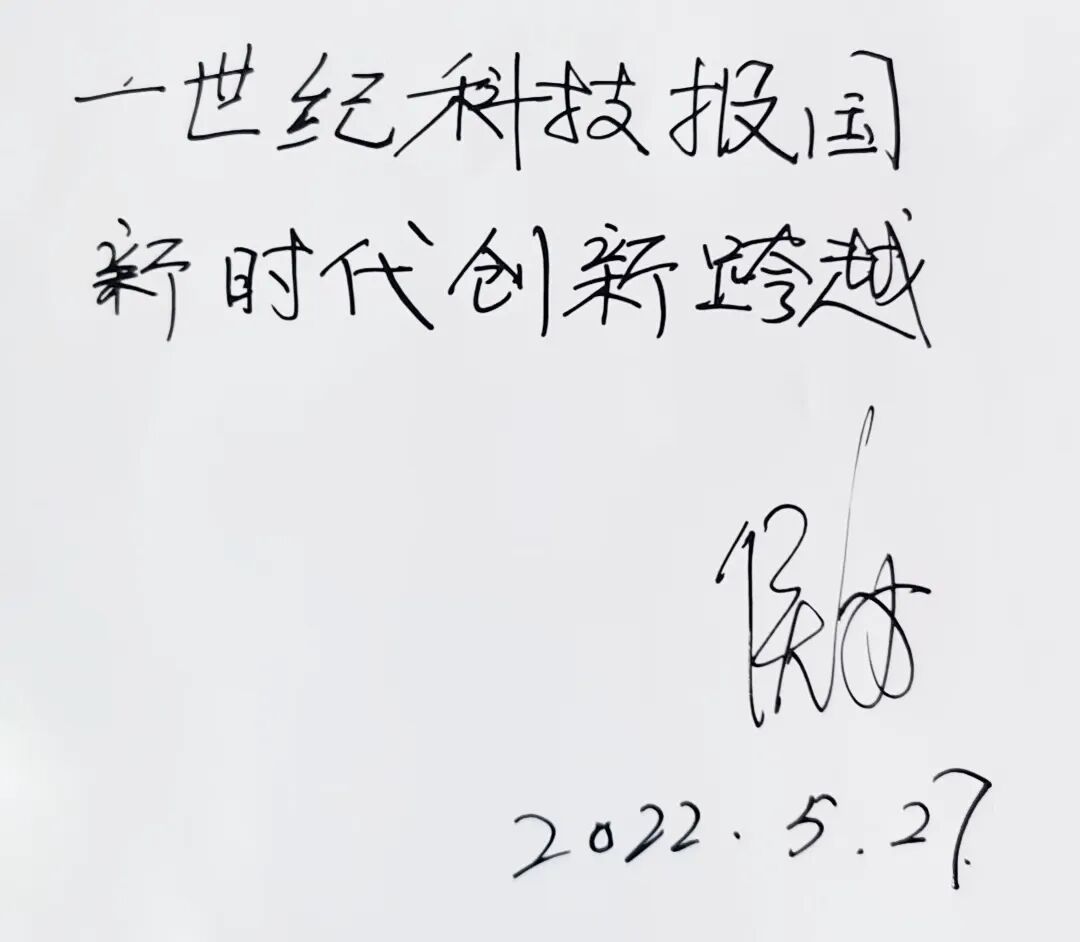 一世纪科技报国
新时代创新跨越
2022.5.27.